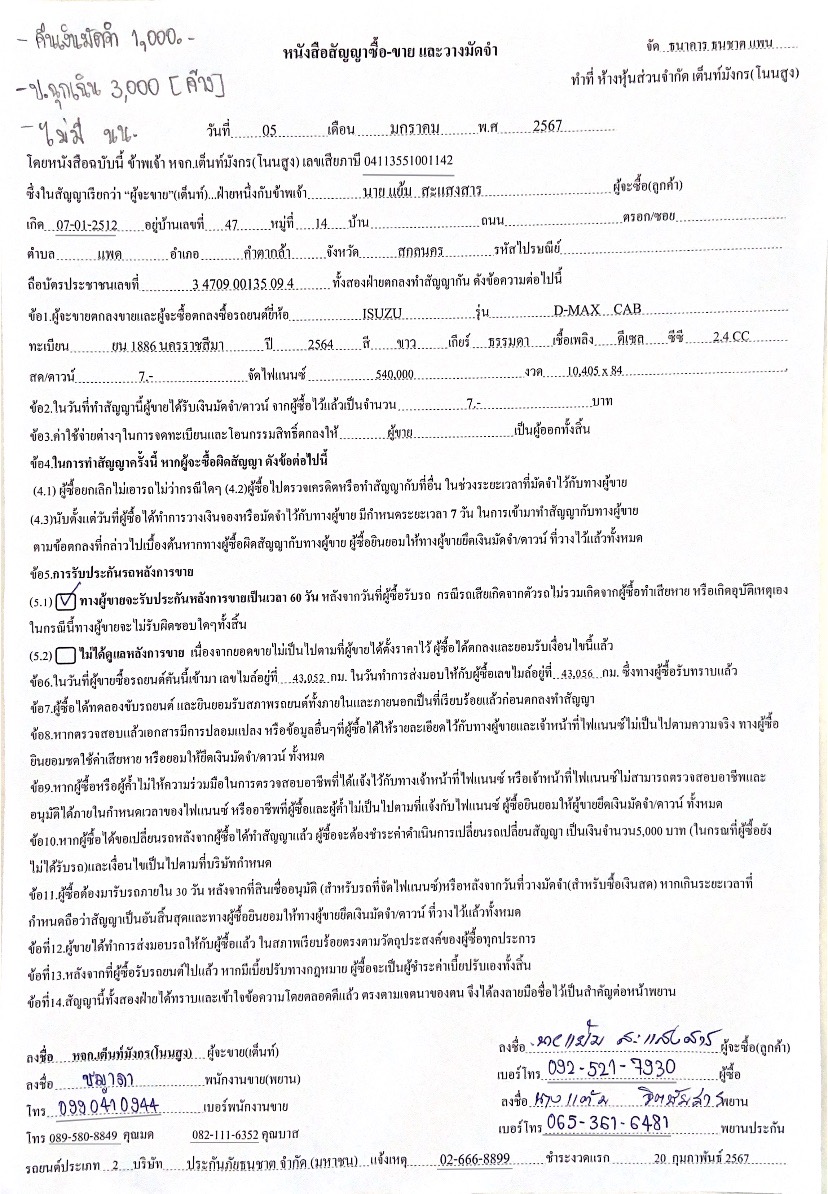 - คืนเงินมัดจำ 1,000.-
- ป.ฉุกเฉิน 3,000 [ค้าง]
- ไม่มี นน.
จัด ธนาคาร ธนชาต แพน
หนังสือสัญญาซื้อ-ขาย และวางมัดจำ
ทำที่ ห้างหุ้นส่วนจำกัด เต็นท์มังกร(โนนสูง)
วันที่ 05 เดือน มกราคม พ.ศ 2567
โดยหนังสือฉบับนี้ ข้าพเจ้า หจก.เต็นท์มังกร(โนนสูง) เลขเสียภาษี 04113551001142
ซึ่งในสัญญาเรียกว่า "ผู้จะขาย"(เต็นท์)...ฝ่ายหนึ่งกับข้าพเจ้า นาย แย้ม สะแสงสาร ผู้จะซื้อ(ลูกค้า)
เกิด 07-01-2512 อยู่บ้านเลขที่ 47 หมู่ที่ 14 บ้าน ถนน ตรอก/ซอย
ตำบล แพด อำเภอ คำตากล้า จังหวัด สกลนคร รหัสไปรษณีย์
ถือบัตรประชาชนเลขที่ 3 4709 00135 09 4 ทั้งสองฝ่ายตกลงทำสัญญากัน ดังข้อความต่อไปนี้
ข้อ1.ผู้จะขายตกลงขายและผู้จะซื้อตกลงซื้อรถยนต์ยี่ห้อ ISUZU รุ่น D-MAX CAB
ทะเบียน ยน 1886 นครราชสีมา ปี 2564 สี ขาว เกียร์ ธรรมดา เชื้อเพลิง ดีเซล ซีซี 2.4 CC
สด/ดาวน์ 7.- จัดไฟแนนซ์ 540,000 งวด 10,405 x 84
ข้อ2.ในวันที่ทำสัญญานี้ผู้ขายได้รับเงินมัดจำ/ดาวน์ จากผู้ซื้อไว้แล้วเป็นจำนวน 7.- บาท
ข้อ3.ค่าใช้จ่ายต่างๆในการจดทะเบียนและโอนกรรมสิทธิ์ตกลงให้ ผู้ขาย เป็นผู้ออกทั้งสิ้น
ข้อ4.ในการทำสัญญาครั้งนี้ หากผู้จะซื้อผิดสัญญา ดังข้อต่อไปนี้
(4.1) ผู้ซื้อยกเลิกไม่เอารถไม่ว่ากรณีใดๆ (4.2)ผู้ซื้อไปตรวจเครดิตหรือทำสัญญากับที่อื่น ในช่วงระยะเวลาที่มัดจำไว้กับทางผู้ขาย
(4.3)นับตั้งแต่วันที่ผู้ซื้อได้ทำการวางเงินจองหรือมัดจำไว้กับทางผู้ขาย มีกำหนดระยะเวลา 7 วัน ในการเข้ามาทำสัญญากับทางผู้ขาย
ตามข้อตกลงที่กล่าวไปเบื้องต้นหากทางผู้ซื้อผิดสัญญากับทางผู้ขาย ผู้ซื้อยินยอมให้ทางผู้ขายยึดเงินมัดจำ/ดาวน์ ที่วางไว้แล้วทั้งหมด
ข้อ5.การรับประกันรถหลังการขาย
(5.1) ☑ ทางผู้ขายจะรับประกันหลังการขายเป็นเวลา 60 วัน หลังจากวันที่ผู้ซื้อรับรถ กรณีรถเสียเกิดจากตัวรถไม่รวมเกิดจากผู้ซื้อทำเสียหาย หรือเกิดอุบัติเหตุเอง
ในกรณีนี้ทางผู้ขายจะไม่รับผิดชอบใดๆทั้งสิ้น
(5.2) ☐ ไม่ได้ดูแลหลังการขาย เนื่องจากยอดขายไม่เป็นไปตามที่ผู้ขายได้ตั้งราคาไว้ ผู้ซื้อได้ตกลงและยอมรับเงื่อนไขนี้แล้ว
ข้อ6.ในวันที่ผู้ขายซื้อรถยนต์คันนี้เข้ามา เลขไมล์อยู่ที่ 43,052 กม. ในวันทำการส่งมอบให้กับผู้ซื้อเลขไมล์อยู่ที่ 43,056 กม. ซึ่งทางผู้ซื้อรับทราบแล้ว
ข้อ7.ผู้ซื้อ ได้ทดลองขับรถยนต์ และยินยอมรับสภาพรถยนต์ทั้งภายในและภายนอกเป็นที่เรียบร้อยแล้วก่อนตกลงทำสัญญา
ข้อ8.หากตรวจสอบแล้วเอกสารมีการปลอมแปลง หรือข้อมูลอื่นๆที่ผู้ซื้อได้ให้รายละเอียดไว้กับทางผู้ขายและเจ้าหน้าที่ไฟแนนซ์ไม่เป็นไปตามความจริง ทางผู้ซื้อ
ยินยอมชดใช้ค่าเสียหาย หรือยอมให้ยึดเงินมัดจำ/ดาวน์ ทั้งหมด
ข้อ9.หากผู้ซื้อหรือผู้ค้ำไม่ให้ความร่วมมือในการตรวจสอบอาชีพที่ได้แจ้งไว้กับทางเจ้าหน้าที่ไฟแนนซ์ หรือเจ้าหน้าที่ไฟแนนซ์ไม่สามารถตรวจสอบอาชีพและ
อนุมัติได้ภายในกำหนดเวลาของไฟแนนซ์ หรืออาชีพที่ผู้ซื้อและผู้ค้ำไม่เป็นไปตามที่แจ้งกับไฟแนนซ์ ผู้ซื้อยินยอมให้ผู้ขายยึดเงินมัดจำ/ดาวน์ ทั้งหมด
ข้อ10.หากผู้ซื้อได้ขอเปลี่ยนรถหลังจากผู้ซื้อได้ทำสัญญาแล้ว ผู้ซื้อจะต้องชำระค่าดำเนินการเปลี่ยนรถเปลี่ยนสัญญา เป็นเงินจำนวน5,000 บาท (ในกรณีที่ผู้ซื้อยัง
ไม่ได้รับรถ)และเงื่อนไขเป็นไปตามที่บริษัทกำหนด
ข้อ11.ผู้ซื้อต้องมารับรถภายใน 30 วัน หลังจากที่สินเชื่ออนุมัติ (สำหรับรถที่จัดไฟแนนซ์)หรือหลังจากวันที่วางมัดจำ(สำหรับซื้อเงินสด) หากเกินระยะเวลาที่
กำหนดถือว่าสัญญาเป็นอันสิ้นสุดและทางผู้ซื้อยินยอมให้ทางผู้ขายยึดเงินมัดจำ/ดาวน์ ที่วางไว้แล้วทั้งหมด
ข้อที่12.ผู้ขายได้ทำการส่งมอบรถให้กับผู้ซื้อแล้ว ในสภาพเรียบร้อยตรงตามวัตถุประสงค์ของผู้ซื้อทุกประการ
ข้อที่13.หลังจากที่ผู้ซื้อรับรถยนต์ไปแล้ว หากมีเบี้ยปรับทางกฎหมาย ผู้ซื้อจะเป็นผู้ชำระค่าเบี้ยปรับเองทั้งสิ้น
ข้อที่14.สัญญานี้ทั้งสองฝ่ายได้ทราบและเข้าใจข้อความโดยตลอดดีแล้ว ตรงตามเจตนาของตน จึงได้ลงลายมือชื่อไว้เป็นสำคัญต่อหน้าพยาน
ลงชื่อ หจก.เต็นท์มังกร(โนนสูง) ผู้จะขาย(เต็นท์)
ลงชื่อ นายแย้ม สะแสงสาร ผู้จะซื้อ(ลูกค้า)
ลงชื่อ ชญาดา พนักงานขาย(พยาน)
เบอร์โทร 092-521-7930 ผู้ซื้อ
โทร 0990410944 เบอร์พนักงานขาย
ลงชื่อ พยาน
โทร 089-580-8849 คุณมด 082-111-6352 คุณบาส
เบอร์โทร 065-361-6481 พยานประกัน
รถยนต์ประเภท 2 บริษัท ประกันภัยธนชาต จำกัด (มหาชน) แจ้งเหตุ 02-666-8899 ชำระงวดแรก 20 กุมภาพันธ์ 2567